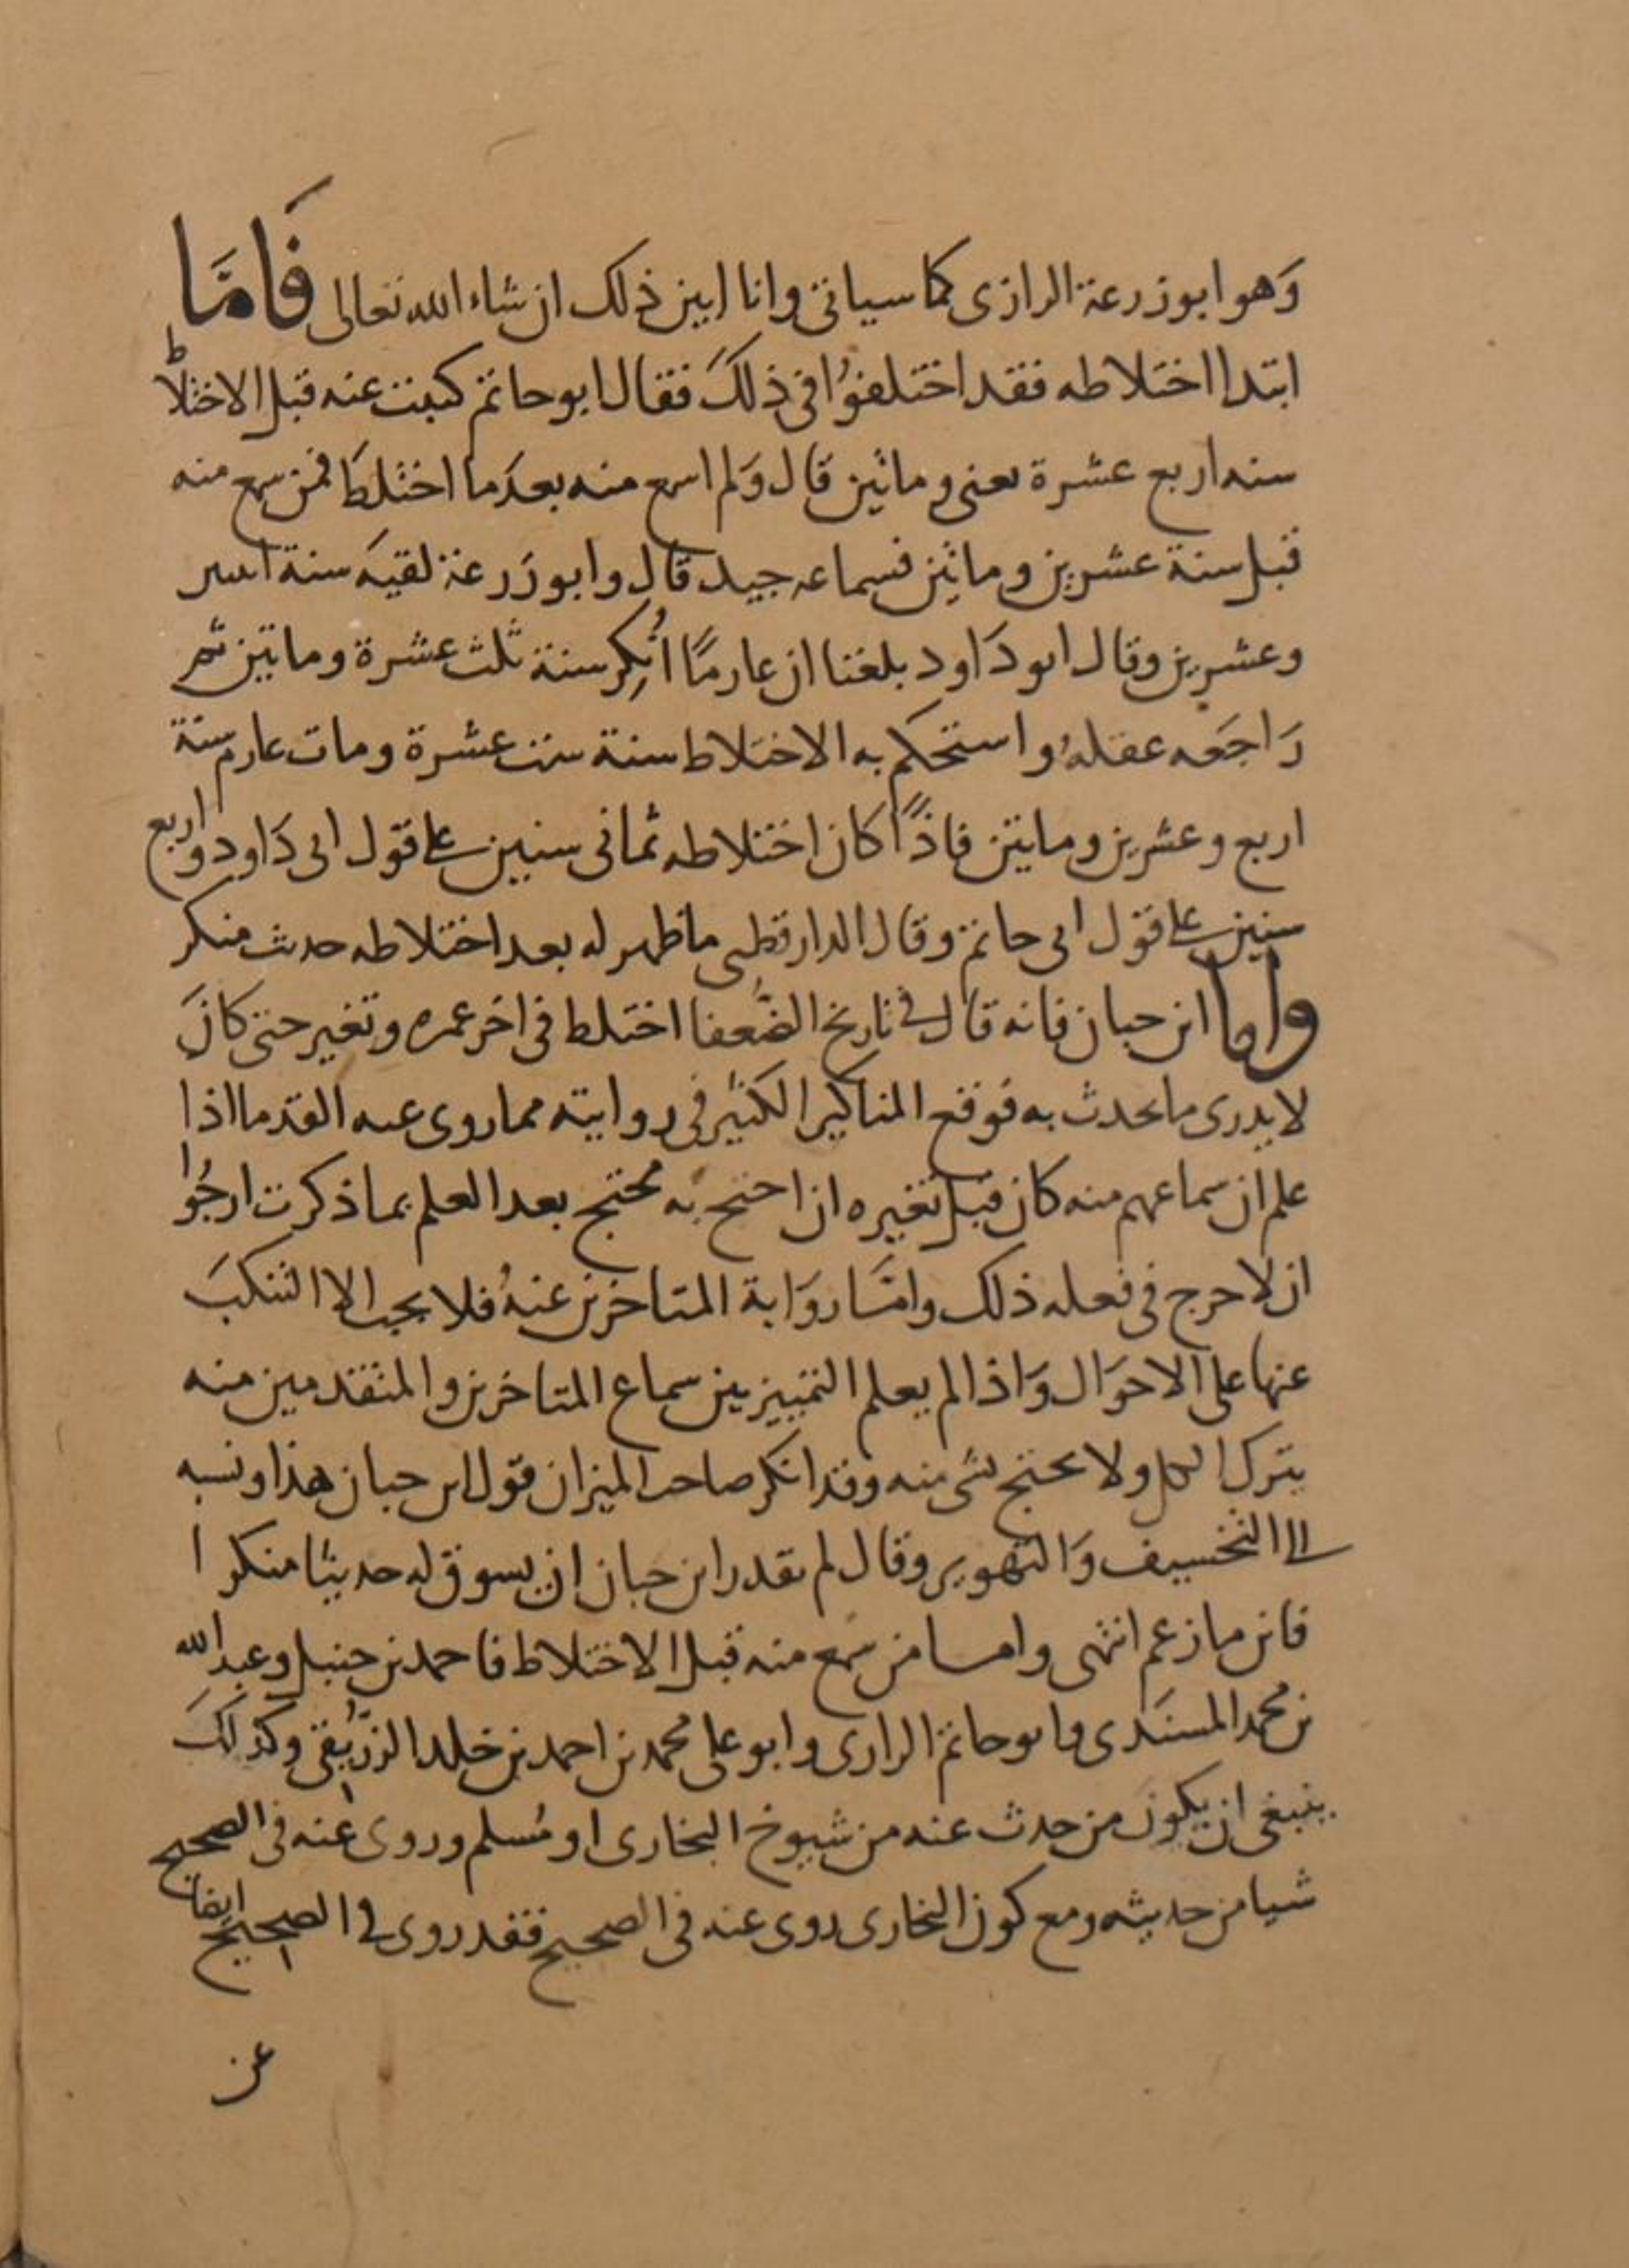 وَهو ابو زرعة الرازى كما سياتى وانا ابين ذلك ان شاء الله تعالى فَامَّا
ابتدا اختلاطه فقد اختلفوُا فى ذلكَ فقال ابو حاتم كتبت عنه قبل الاختلاط
سنه اربع عشرة يعنى وماتين قال وَلم اسمع منه بعدَ ما اختلط فمن سمع منه
قبل سنة عشرين وماتين فسماعه جيد قال وابو زَرعة لقيَه سنة اثنين
وعشرين وقال ابو دَاود بلغنا ان عارمًا اُنكِر سنة ثلث عشرة وماتين ثم
رَاجعَه عقلهُ واستحكم به الاختلاط سنة ست عشرة ومات عارم سنة
اربع وعشرين وماتين فاذًا كان اختلاطه ثمانى سنين على قول ابى دَاود واربع
سنين على قول ابى حاتم وقال الدارقطنى ما ظهر له بعد اختلاطه حديث منكر
واما ابن حبان فانه قال فى تاريخ الضُعفا اختلط فى اخر عمره وتغير حتى كانَ
لا يدرى ما يحدث به فوقع المناكير الكثير فى روايته مما روى عنه القدما اذا
علم ان سماعهم منه كان قبل تغيره ان احتج به محتج بعد العلم بما ذكرت ارجُوا
ان لا حرج فى فعله ذلك وامَّا روَاية المتاخرين عنهُ فلا يجب الا التنكبَ
عنها على الاحوَال وَاذا لم يعلم التمييز بين سماع المتاخرين والمتقدمين منه
يترك الكل ولا يحتج بشى منه وقد انكر صاحب الميزان قول ابن حبان هذا ونسبه
الى التخسيف وَالتهوير وقال لم يقدر ابن حبان ان يسوق له حديثا منكرا
فاين ما زعم انتهى واما من سَمع منه قبل الاختلاط فاحمد بن حنبل وعبد الله
بن محمد المسنَدى وابو حاتم الرازى وابو على محمد بن احمد بن خلد الزرَيقى وكذلكَ
ينبغى ان يكونَ من حدث عنه من شيوخ البخارى او مُسلم وروى عنه فى الصحيح
شيا من حديثه ومع كون البخارى روى عنه فى الصحيح فقد روى فى الصحيح ايضا
عن